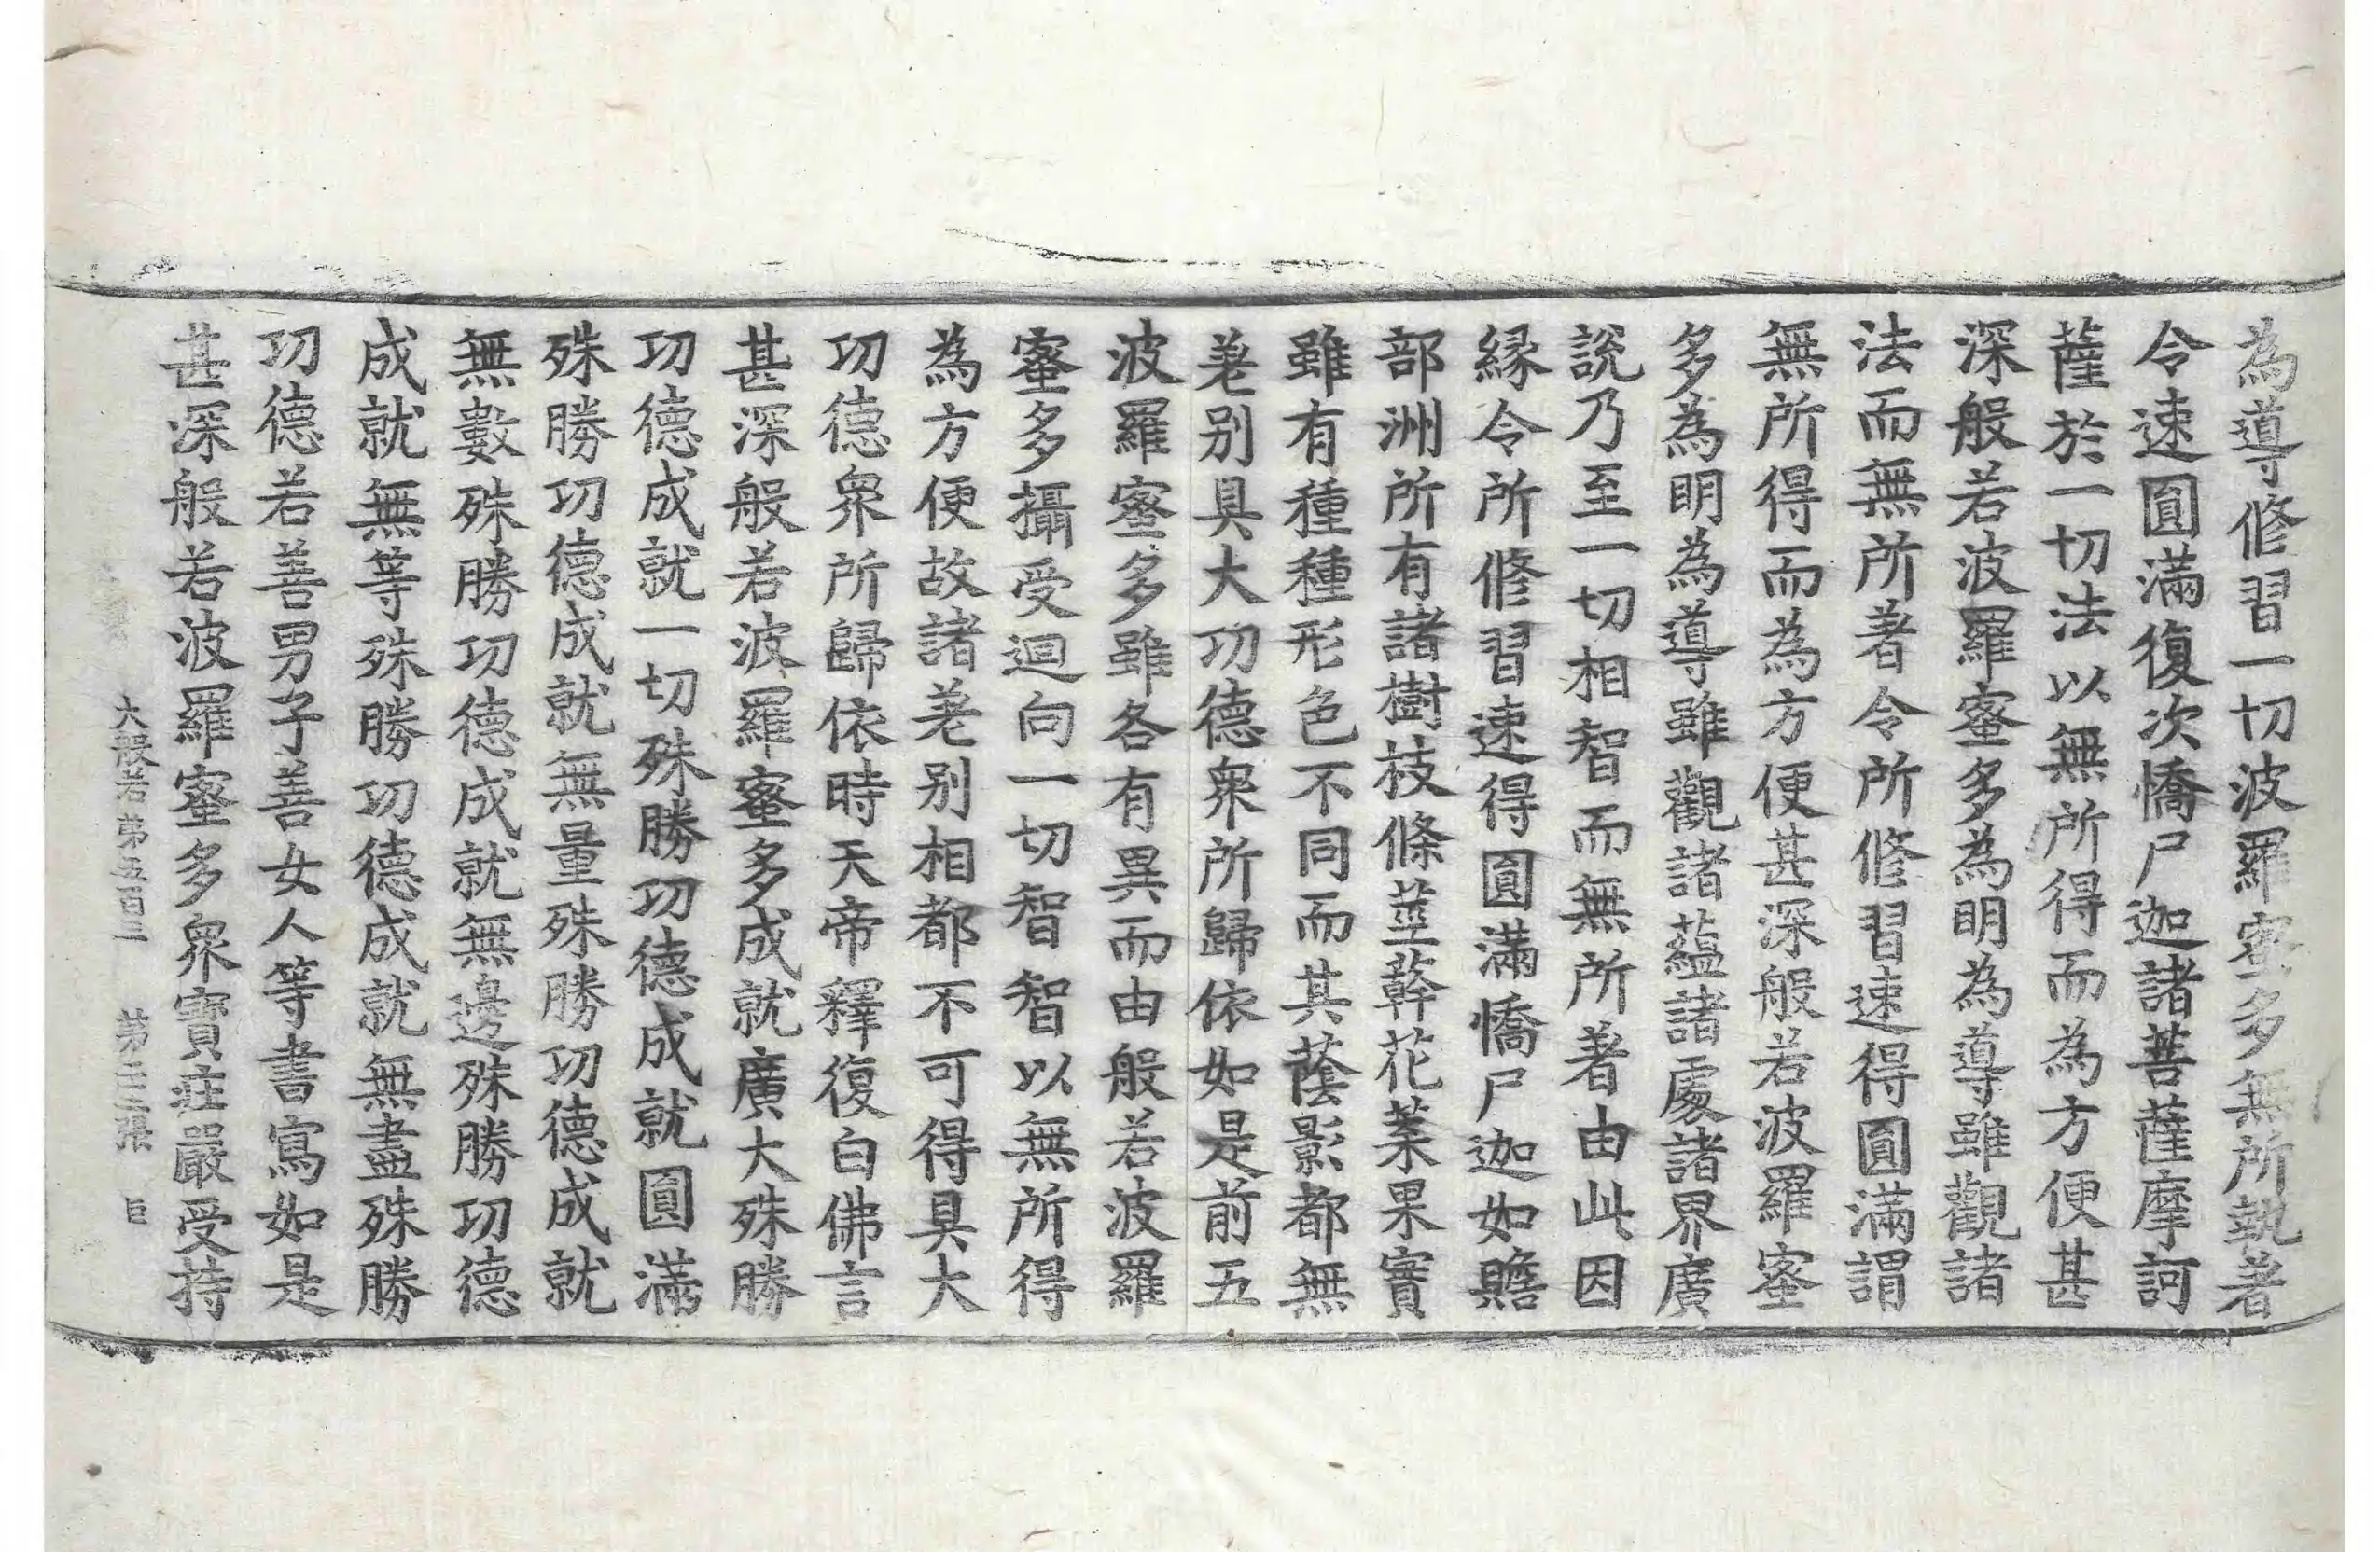 為導修習一切波羅蜜多無所執著
令速圓滿復次憍尸迦諸菩薩摩訶
薩於一切法以無所得而為方便甚
深般若波羅蜜多為明為導雖觀諸
法而無所著令所修習速得圓滿謂
無所得而為方便甚深般若波羅蜜
多為明為導雖觀諸蘊諸處諸界廣
說乃至一切相智而無所著由此因
緣令所修習速得圓滿憍尸迦如贍
部洲所有諸樹枝條莖幹花葉果實
雖有種種形色不同而其蔭影都無
差別具大功德衆所歸依如是前五
波羅蜜多雖各有異而由般若波羅
蜜多攝受迴向一切智智以無所得
為方便故諸差別相都不可得具大
功德衆所歸依時天帝釋復白佛言
甚深般若波羅蜜多成就廣大殊勝
功德成就一切殊勝功德成就圓滿
殊勝功德成就無量殊勝功德成就
無數殊勝功德成就無邊殊勝功德
成就無等殊勝功德成就無盡殊勝
功德若善男子善女人等書寫如是
甚深般若波羅蜜多衆寶莊嚴受持
大般若第五百三 第二三張 臣